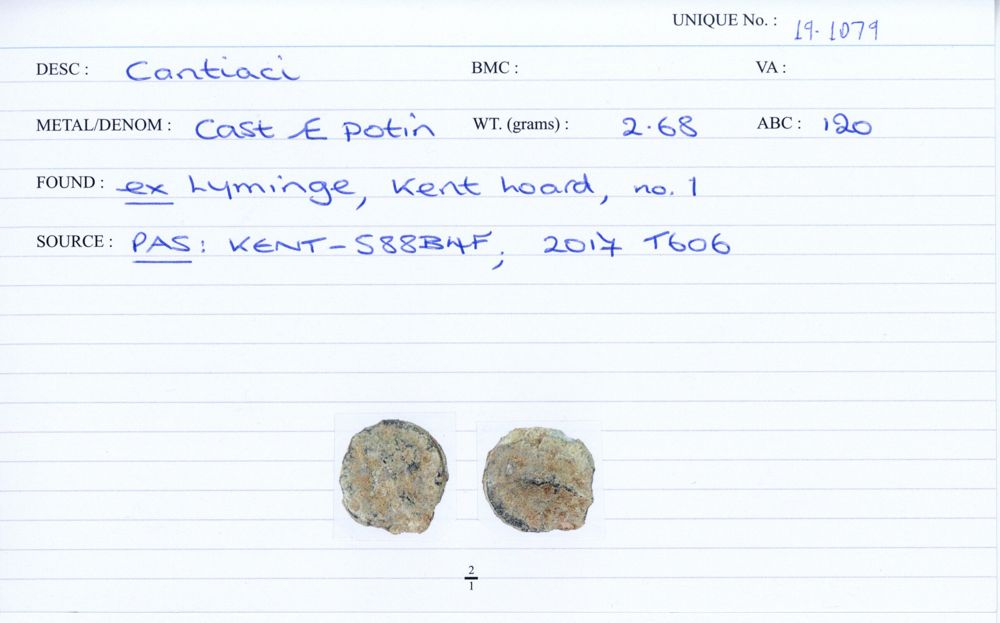 UNIQUE No. : 19.1079
DESC : Cantiaci BMC : VA :
METAL/DENOM : Cast Æ potin WT. (grams) : 2.68 ABC : 120
FOUND : ex Lyminge, Kent hoard, no. 1
SOURCE : PAS: KENT-588B4F; 2017 T606
2
1